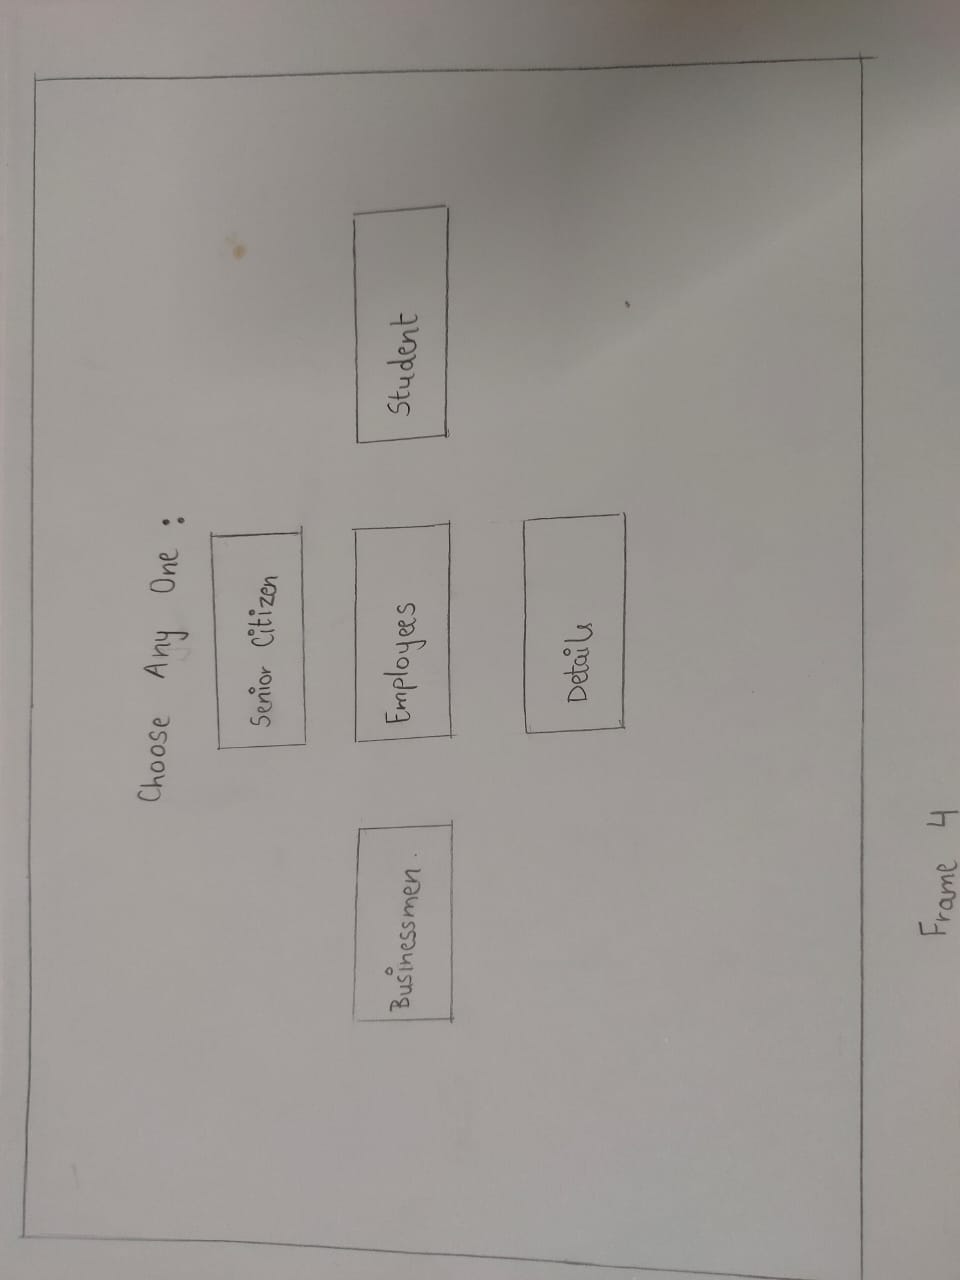 Choose Any One :
Senior Citizen
Businessmen.
Employees
Student
Details
Frame 4